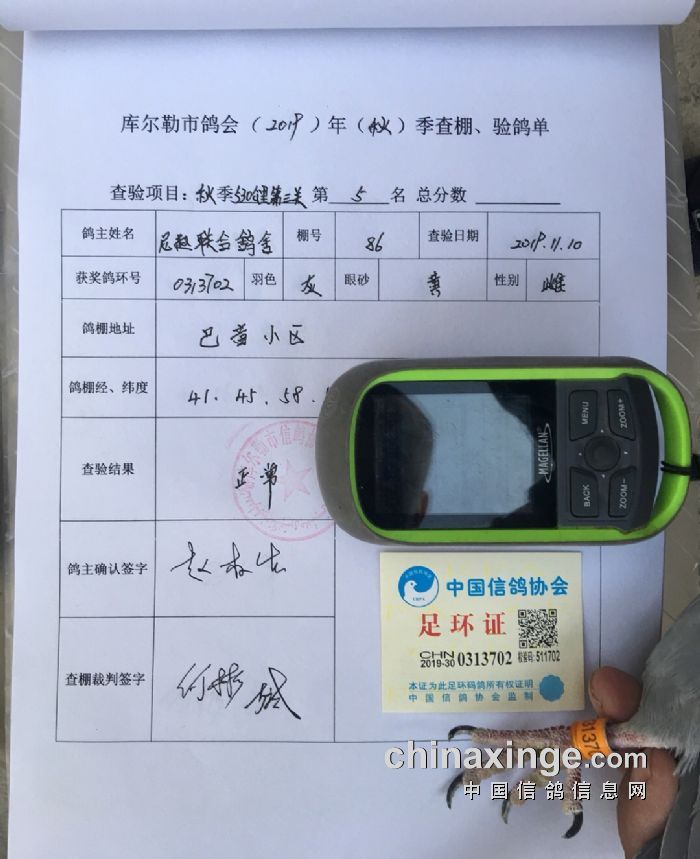 库尔勒市鸽会（2019）年（秋）季查棚、验鸽单
查验项目：秋季530公里第三关 第 5 名 总分数
鸽主姓名 尼赵联合鸽舍 棚号 86 查验日期 2019.11.10
获奖鸽环号 0313702 羽色 灰 眼砂 黄 性别 雌
鸽棚地址 巴音小区
鸽棚经、纬度 41.45.58.
查验结果 正常
鸽主确认签字
查棚裁判签字
MAGELLAN
MENU
ZOOM+
BACK
ZOOM-
中国信鸽协会
足环证
CHN
2019-30 0313702 检索码: 511702
本证为此足环码鸽所有权证明
中国信鸽协会监制
chinaxinge.com
中国信鸽信息网